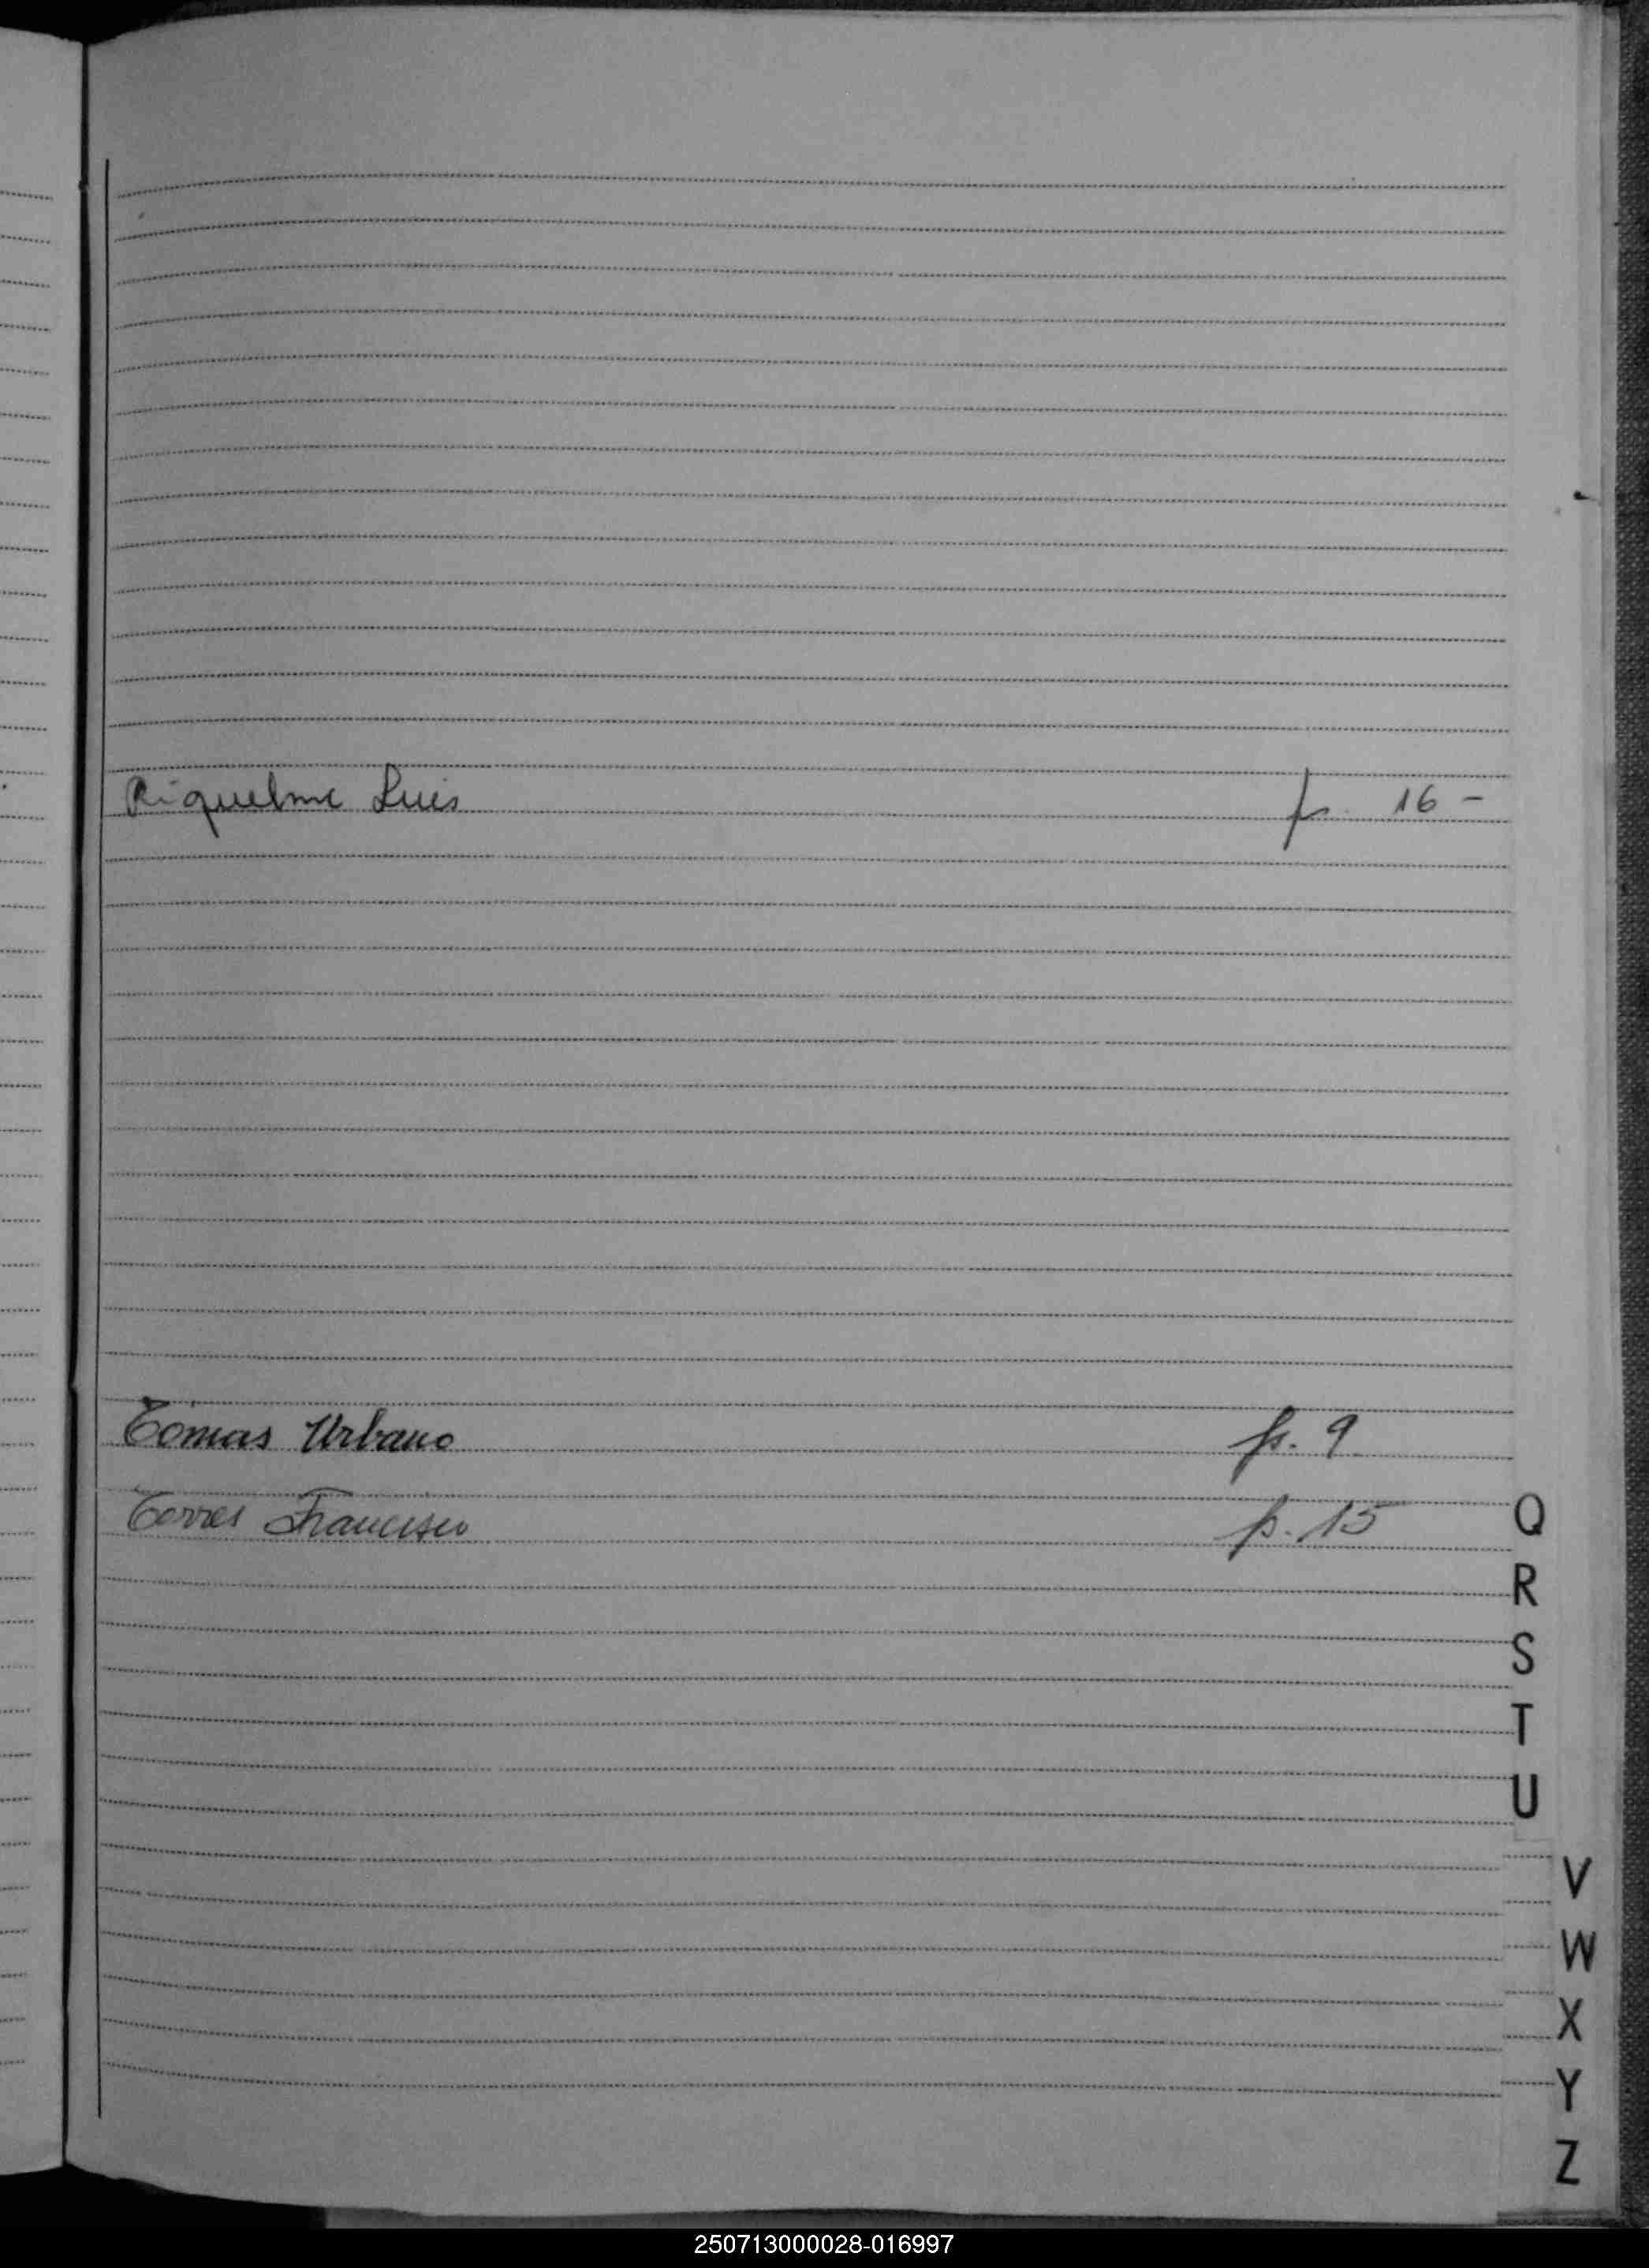 Riquelme Luis p. 16 -
Tomas Urbano p. 9
Torres Francisco p. 15
Q
R
S
T
U
V
W
X
Y
Z
250713000028-016997